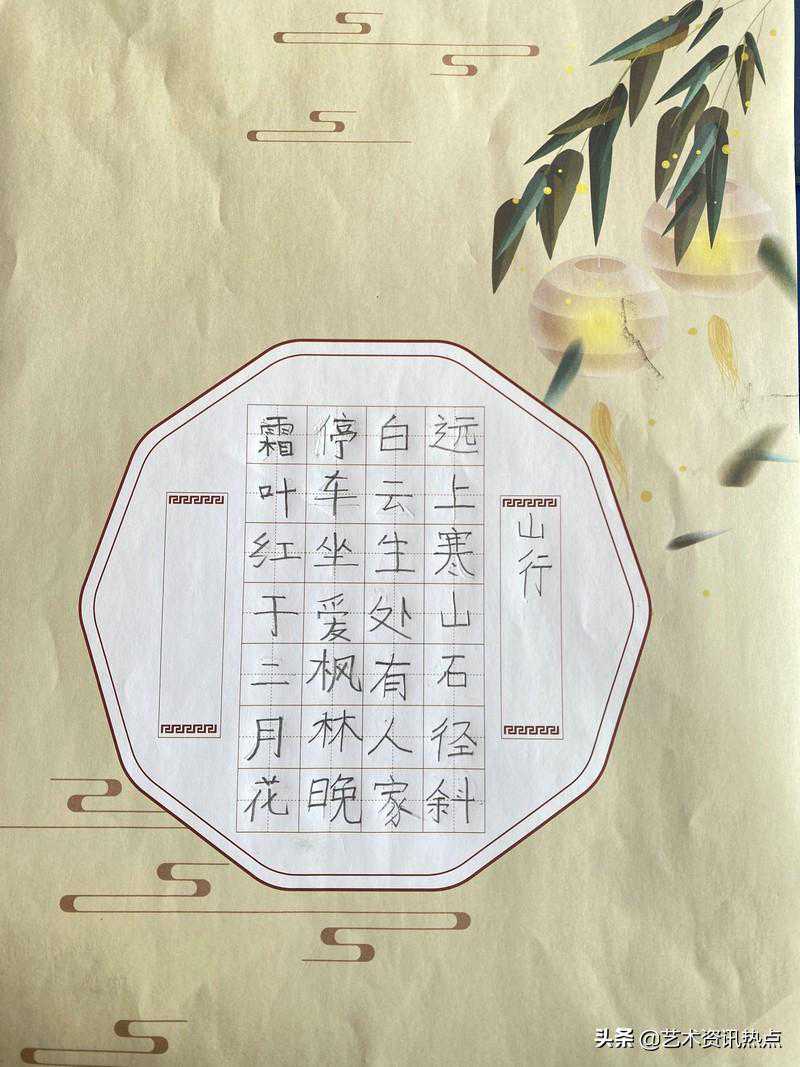 山行
远上寒山石径斜
白云生处有人家
停车坐爱枫林晚
霜叶红于二月花
头条 @艺术资讯热点